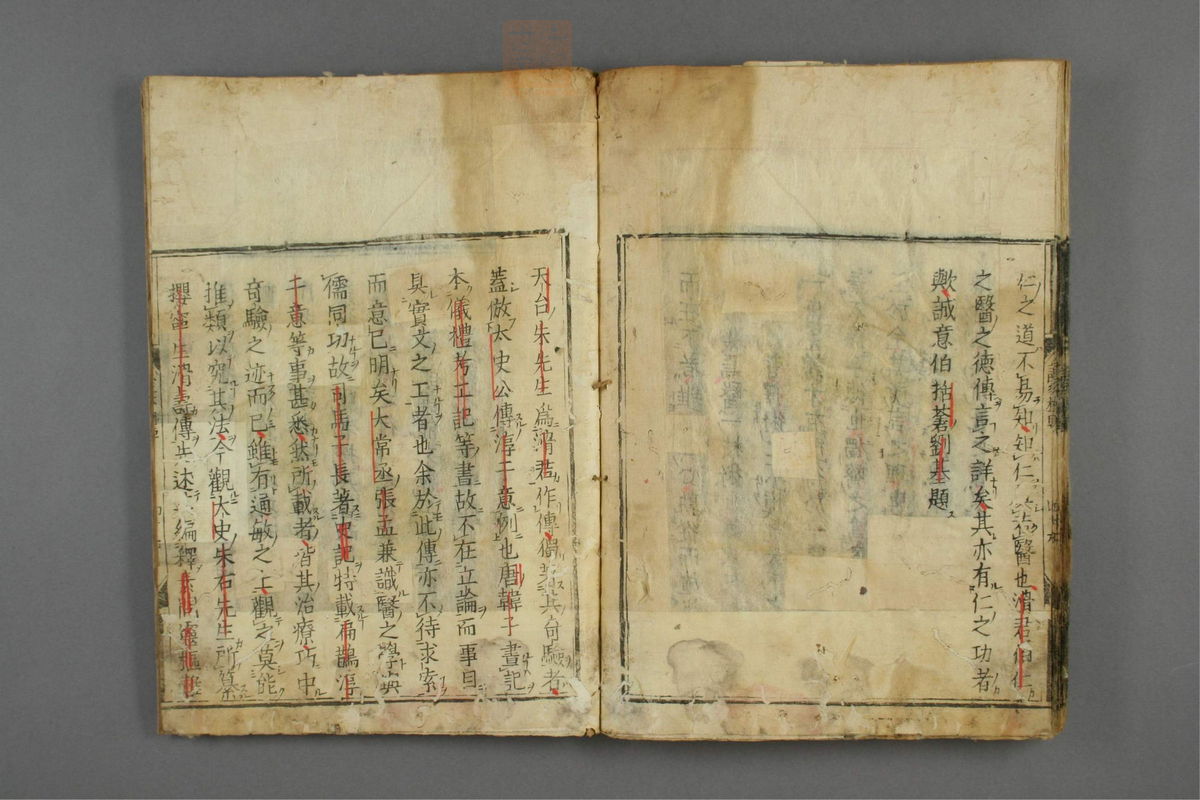 仁之道不易知知仁醫也滑君伯仁
之醫之德傳言之詳矣其亦有仁之功者
歟誠意伯括蒼劉基題
天台朱先生為滑君作傳備著其奇驗者
蓋倣太史公傳淳于意例也唐韓子畫記
本儀禮考工記等書故不在立論而事目
具實文之工者也余於此傳亦不待求索
而意已明矣大常丞張孟兼識醫之學與
儒同功故司馬子長著史記特載扁鵲淳
于意等事甚悉然所載者皆其治療巧中
奇驗之迹而已雖有通敏之士觀之莫能
推類以究其法今觀太史朱右先生所纂
攖寧生滑壽傳其述編釋素問靈樞